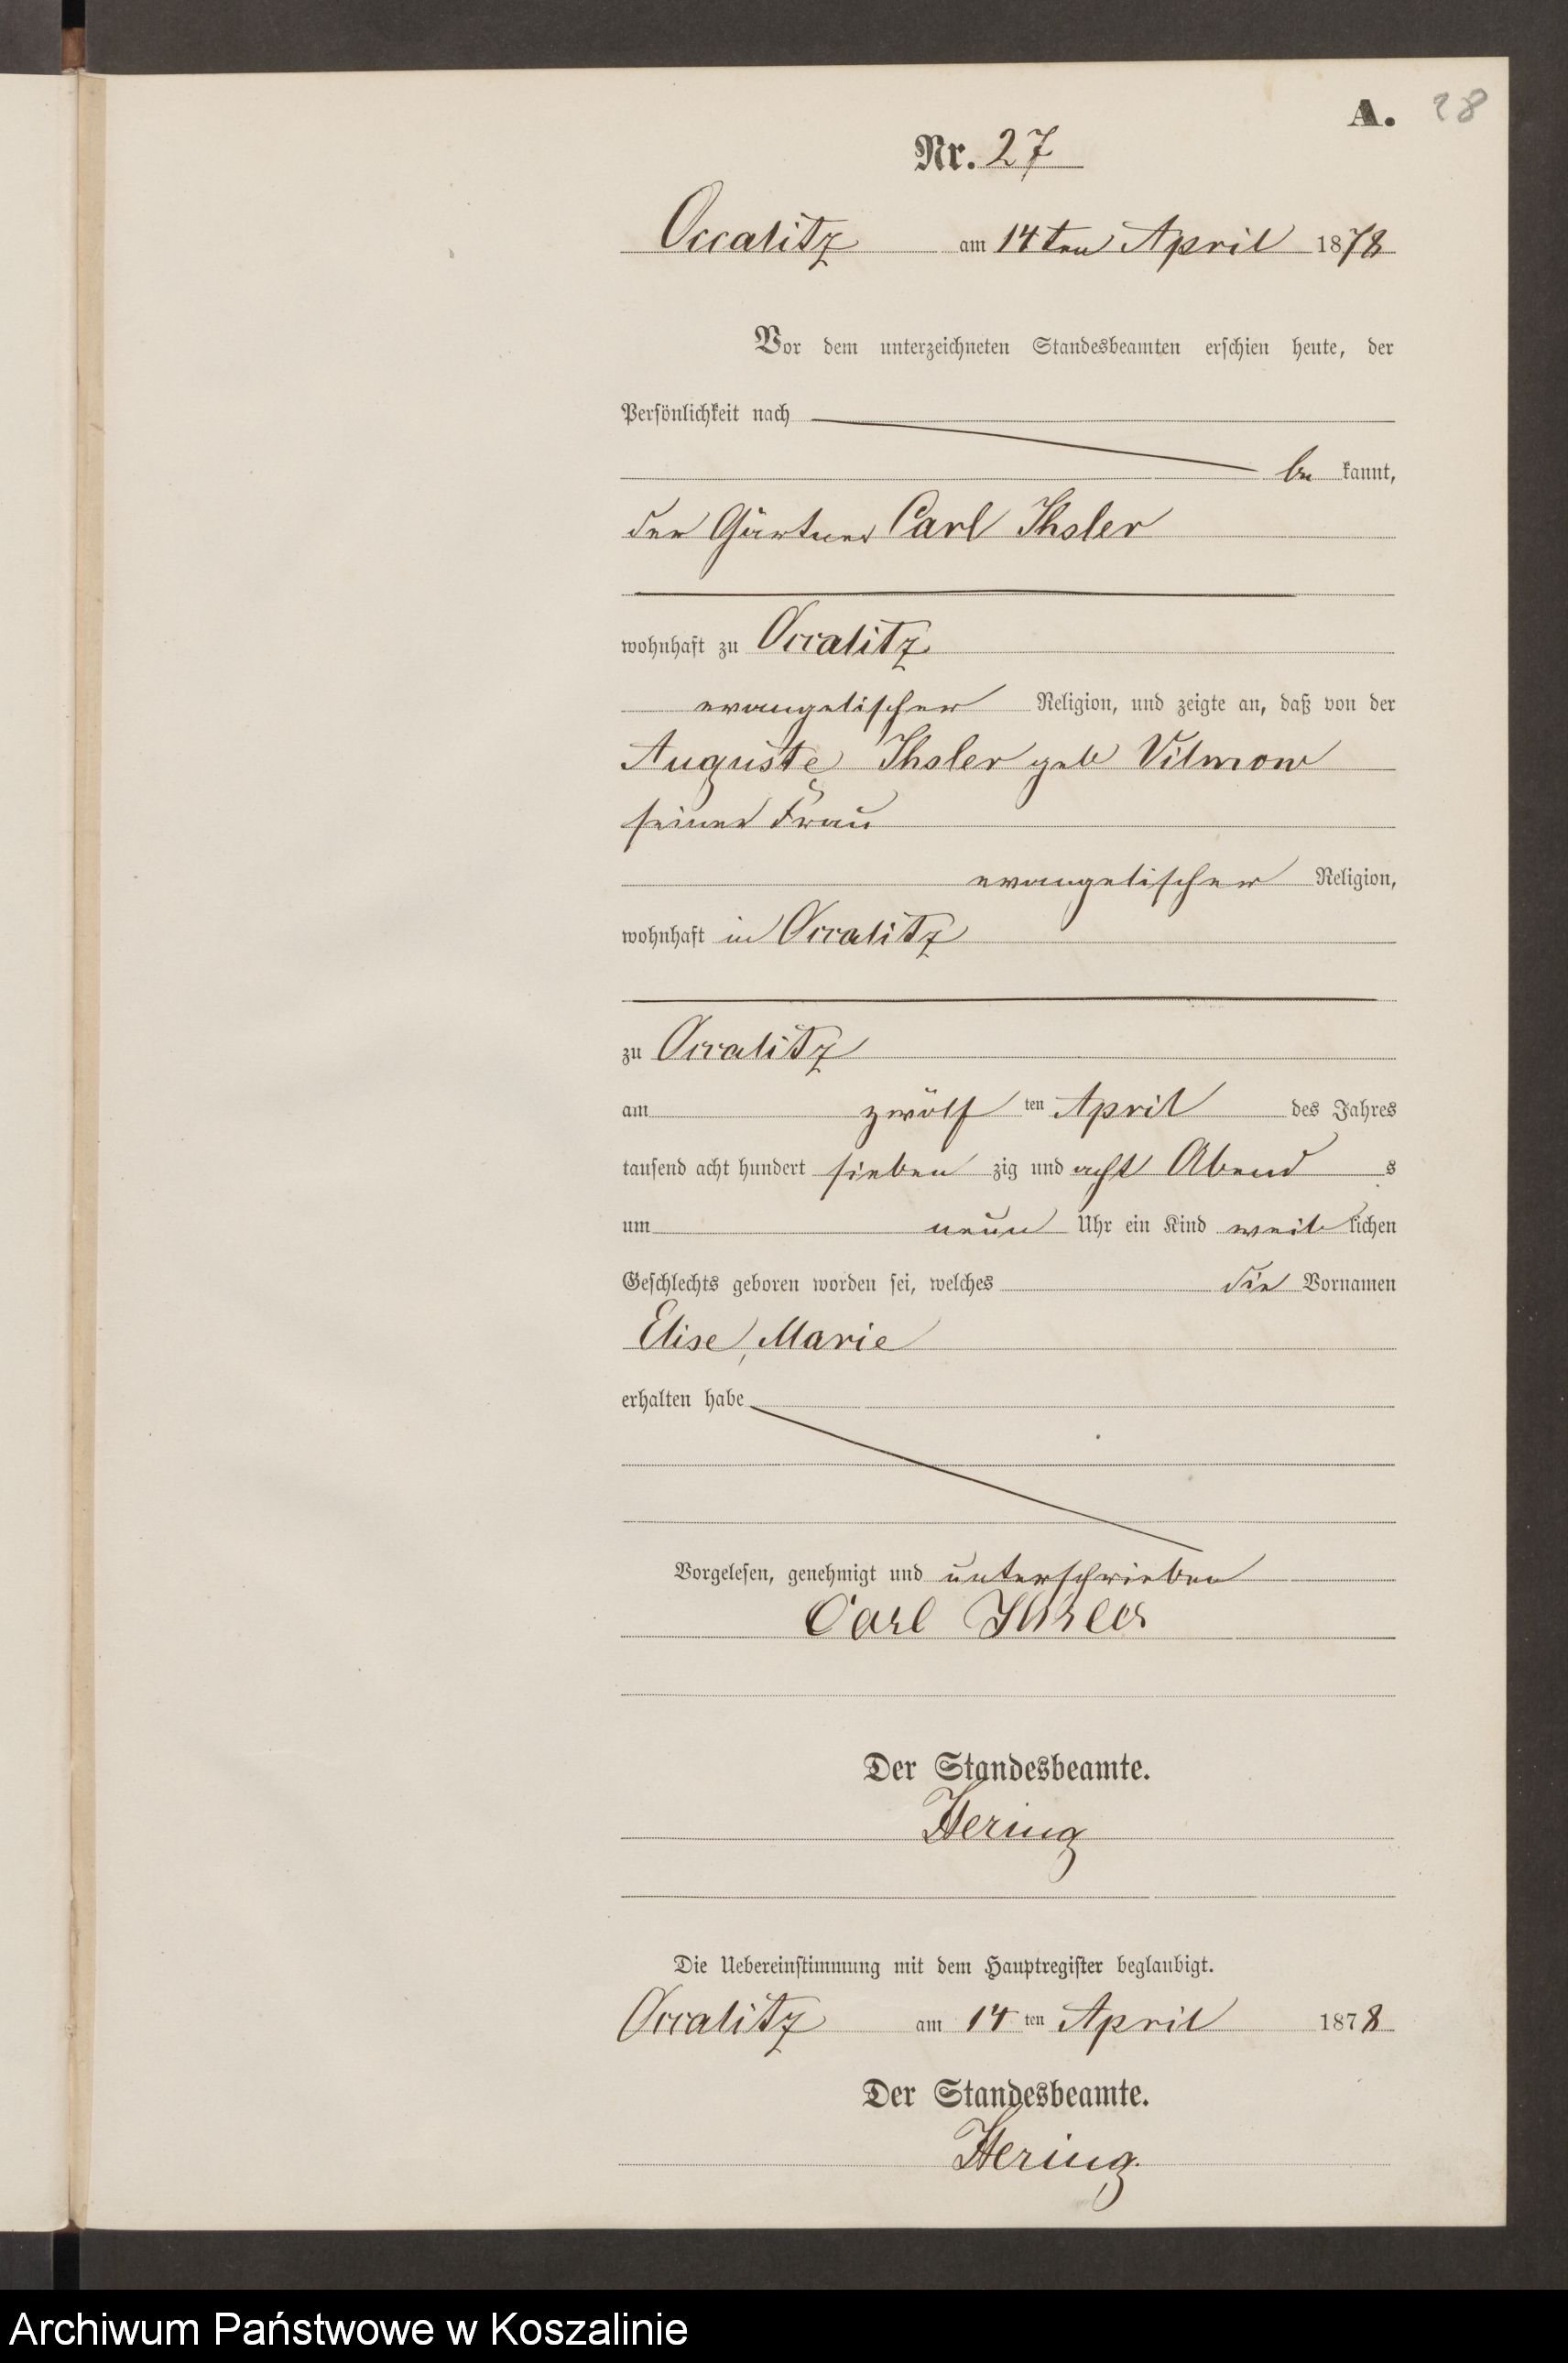 A. 28
Nr. 27
Occalitz am 14ten April 1878
Vor dem unterzeichneten Standesbeamten erschien heute, der
Persönlichkeit nach
be kannt,
der Gärtner Carl Ihsler
wohnhaft zu Occalitz
evangelischer Religion, und zeigte an, daß von der
Auguste Ihsler geb Vilmow
seiner Frau
evangelischer Religion,
wohnhaft in Occalitz
zu Occalitz
am zwölf ten April des Jahres
tausend acht hundert sieben zig und acht Abend s
um neun Uhr ein Kind weib lichen
Geschlechts geboren worden sei, welches die Vornamen
Elise, Marie
erhalten habe
Vorgelesen, genehmigt und unterschrieben
Carl Ihsler
Der Standesbeamte.
Hering
Die Uebereinstimmung mit dem Hauptregister beglaubigt.
Occalitz am 14 ten April 1878
Der Standesbeamte.
Hering.
Archiwum Państwowe w Koszalinie